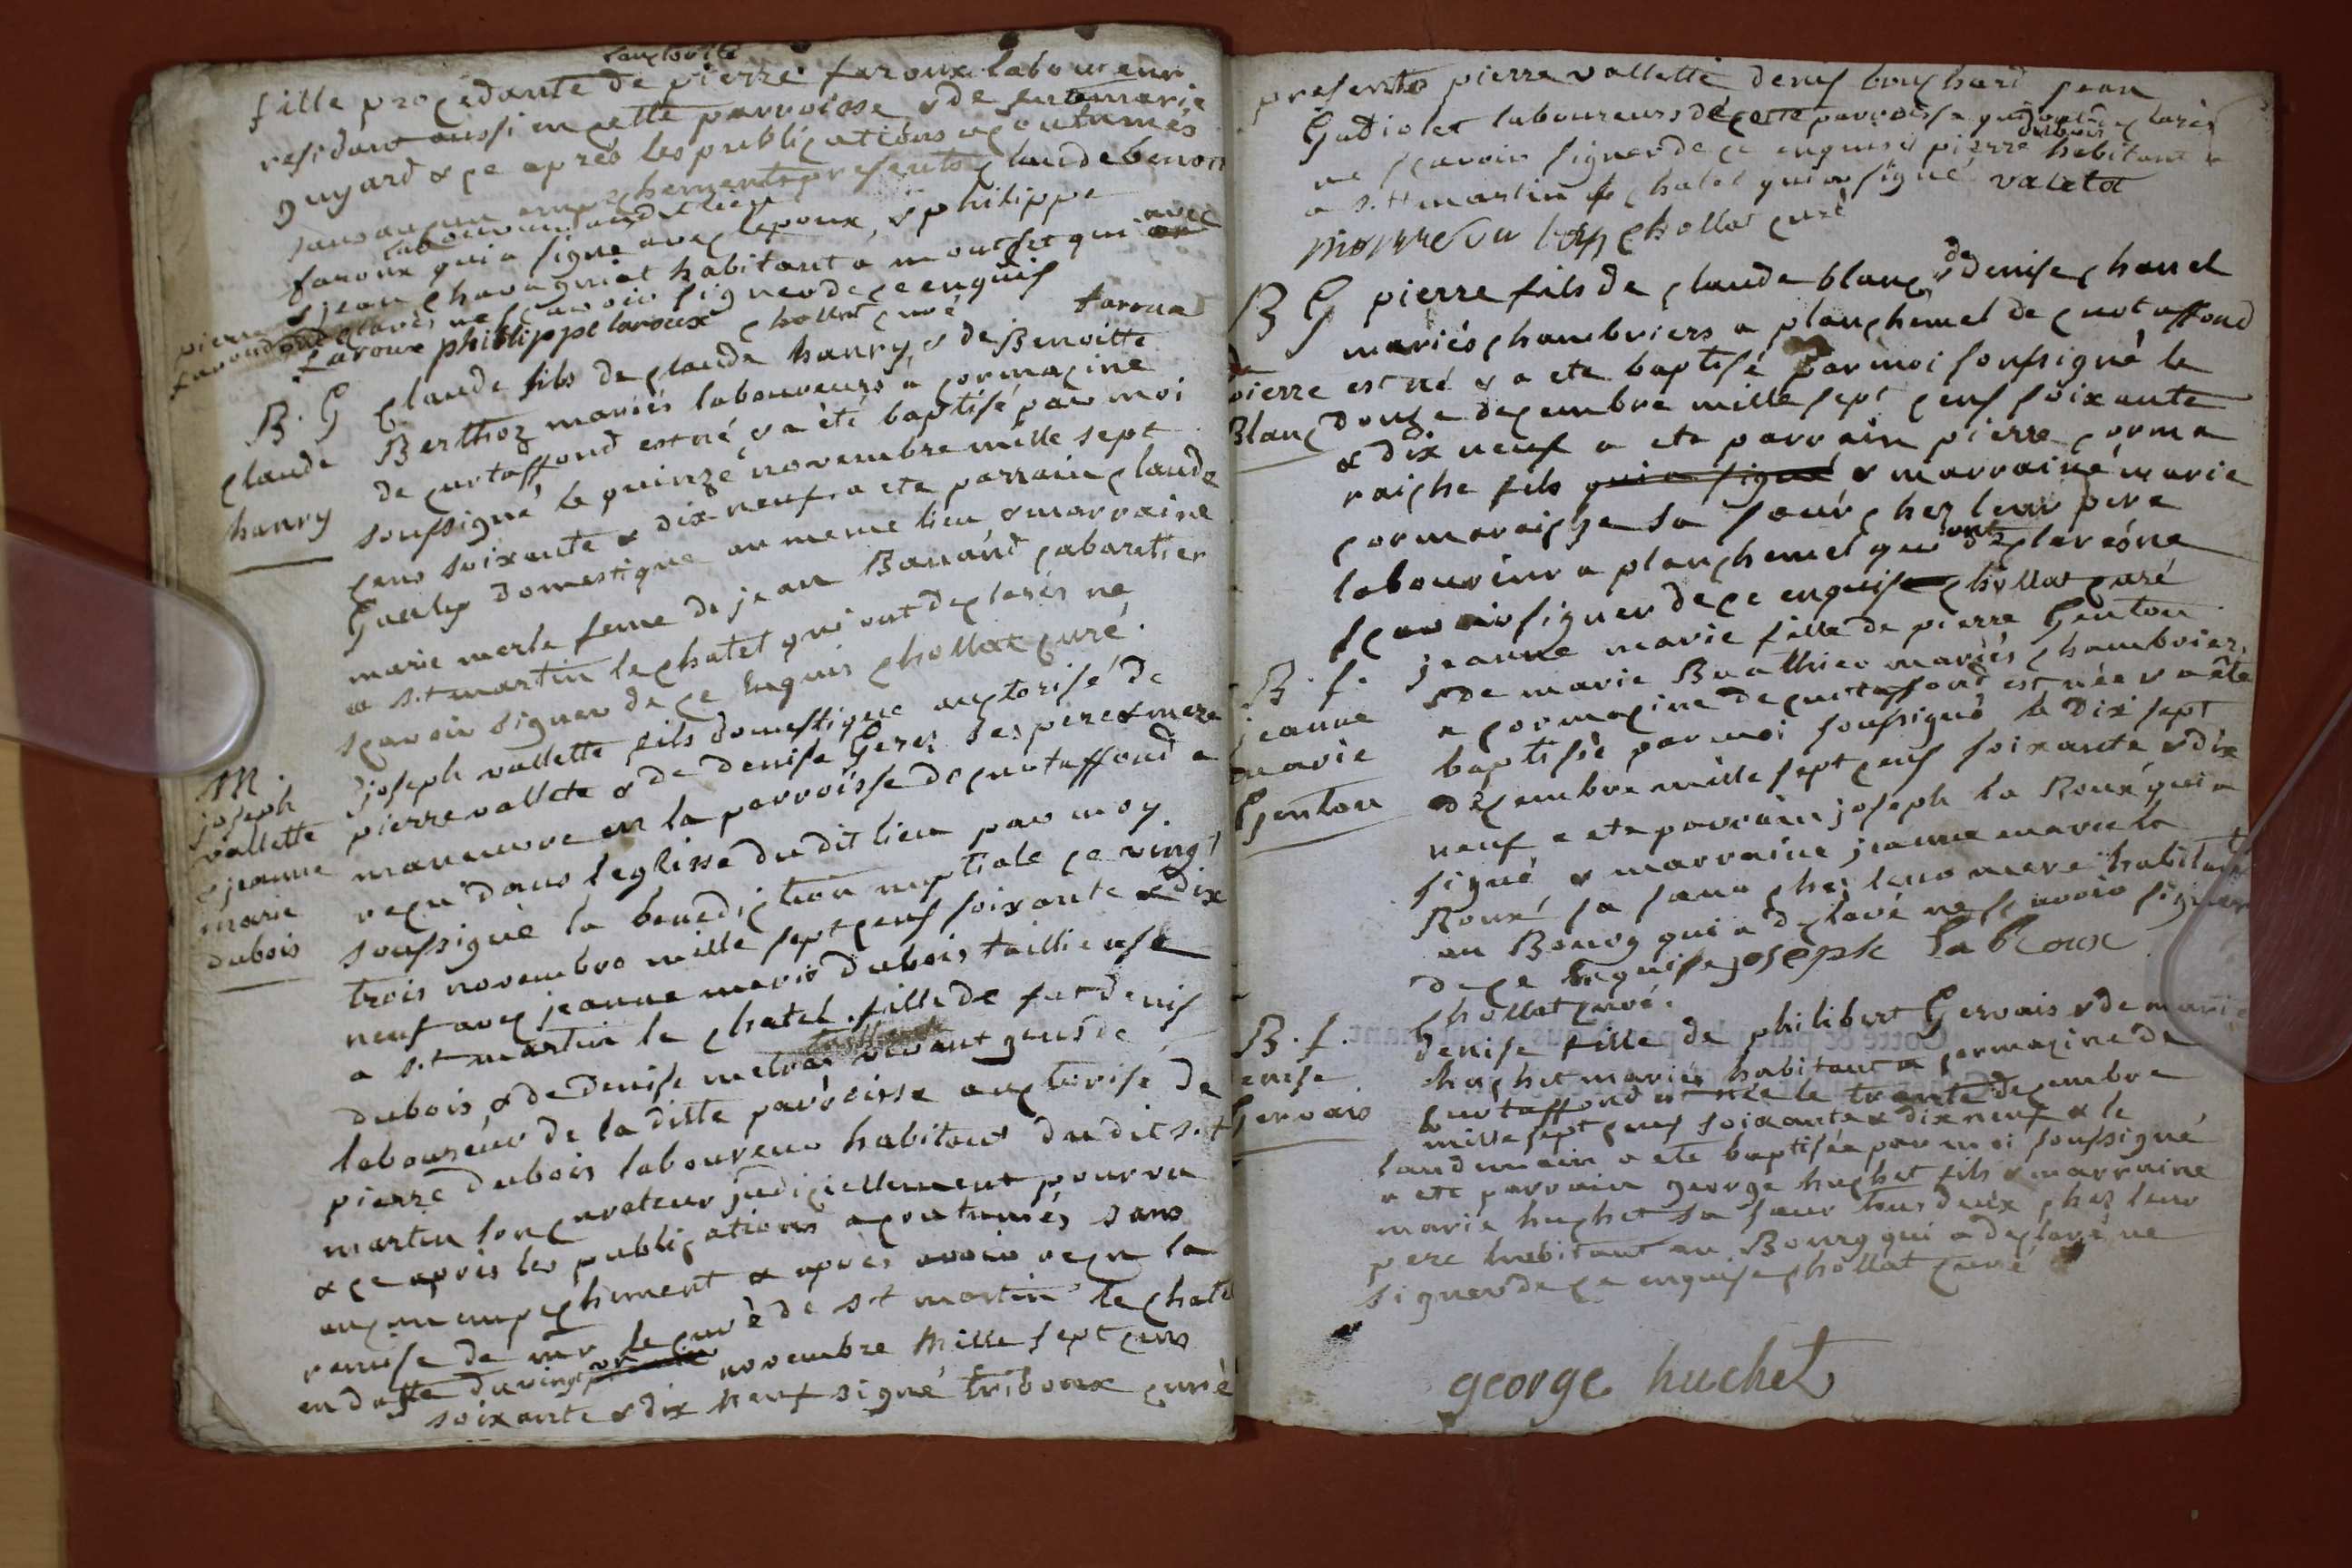 fille procedante de l'auctorité de pierre faroux laboureur
residant aussi en cette parroisse & de feue marie
guyard & ce après les publications acoutumés
sans aucun empechements presents claude benoit
laboureur audit lieu
faroux qui a signé avec lepoux, & philippe
& jean chavagniat habitant a montfet qui avec
pierre faroux ont declarés ne scavoir signer de ce enquis
Laroux philippe laroux chollat curé farouad
B. G claude fils de claude hanry, & de Benoitte
claude Berthoz mariés laboureurs a cormacine
hanry de curtaffond est né & a èté baptisé par moi
soussigné le quinze novembre mille sept
cens soixante & dix-neuf a ete parrain claude
domestique au meme lieu & marraine
marie merle feme de jean Banand cabaretier
a s.t martin le chatel qui ont declarés ne
scavoir signer de ce Enquis chollat curé.
M.
joseph joseph vallette fils domestique auctorisé de
vallette pierre vallete & de denise Geres ses pere & mere
& jeanne manuvre en la parroisse de curtaffond a
marie reçu dans leglisse dudit lieu par moy
dubois soussigné la benediction nuptiale ce vingt
trois novembre mille sept cens soixante & dix
neuf avec jeanne marie dubois tailleuse
a s.t martin le chatel. fille de fut denis
dubois, & de denise metras vivant gens de
laboureur de la ditte parroisse auctorise de
pierre dubois laboureur habitant dudit s.t
martin son curateur judiciellement pourvu
& ce après les publications acoutumés sans
aucun empechement & après avoir reçu la
remise de mr le curè de s.t martin le chatel
en datte du vingt un novembre mille sept cens
soixante & dix neuf signé triboux curé
presents pierre vallette denis bouchard jean
Gadiolet laboureurs de cette parroisse qui ont declarés
ne scavoir signer de ce enquis & pierre dubois habitant
a s.tt martin le chatel qui a signé valeta
chollat curé
B G pierre fils de claude blanc & de denise chanel
mariés chambriers a planchemel de curtaffond
pierre est né & a ete baptisé par moi soussigné le
Blanc douze decembre mille sept cens soixante
& dix neuf a ete parrain pierre corma
raiche fils qui a signé & marraine marie
cormaraiche sa soeur chez leur pere
laboureur a planchemel qui ont declarés ne
scavoir signer de ce enquis chollat curé
B. f. jeanne marie fille de pierre Genton
jeanne & de marie Buathier mariés chambriers
marie a cormacine de curtaffond est née & a été
Genton baptisée par moi soussigné le dix sept
decembre mille sept cens soixante & dix
neuf a ete parrain joseph la Roux qui a
signé & marraine jeanne marie la
Roux sa soeur chez leur mere habitante
au Bourg qui a declaré ne scavoir signer
de ce Enquise joseph la Roux
chollat curé.
B. f. denise fille de philibert Gervais & de marie
denise huchet mariés habitant a cormacine de
Gervais curtaffond est née le trente decembre
mille sept cens soixante & dix neuf & le
landemain a ete baptisée par moi soussigné
a ete parrain george huchet fils & marraine
marie huchet sa soeur tous deux chez leur
pere habitant au Bourg qui a declaré ne
signer de ce enquise chollat curé
george huchet